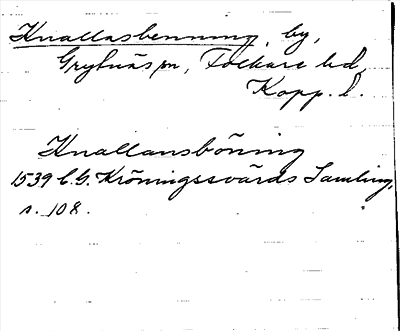 Knallasbenning, by,
Grytnäs sn, Folkare hd,
Kopp. l.
Knallansböning
1539 C. G. Kröningssvärds Samling,
s. 108.